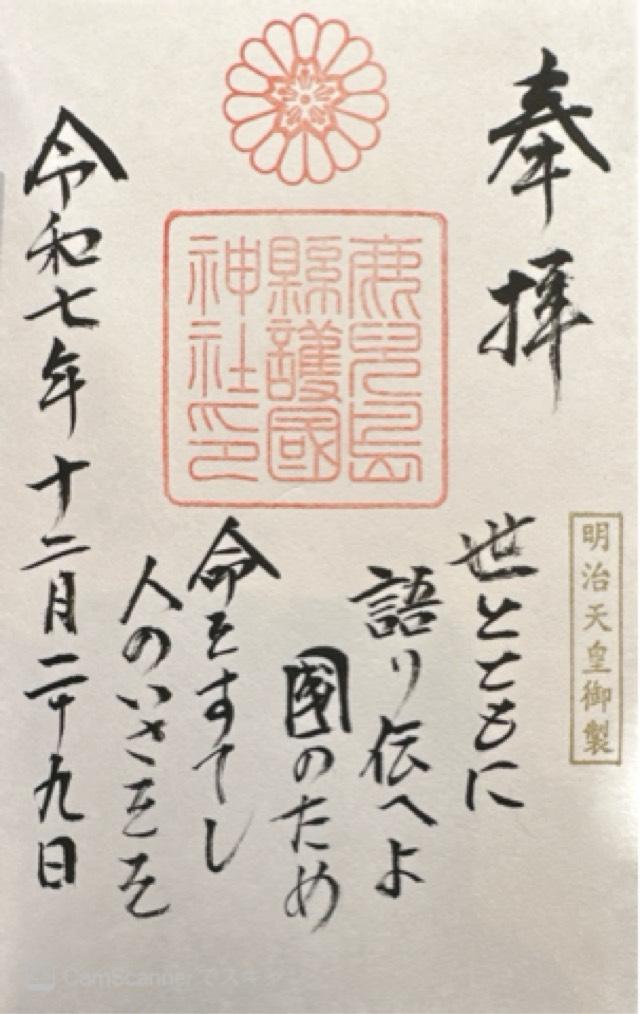 奉拝
明治天皇御製
世とともに
語り伝へよ
國のため
命をすてし
人のいさをを
鹿児島
縣護國
神社印
令和七年十二月二十九日
CamScannerでスキャン